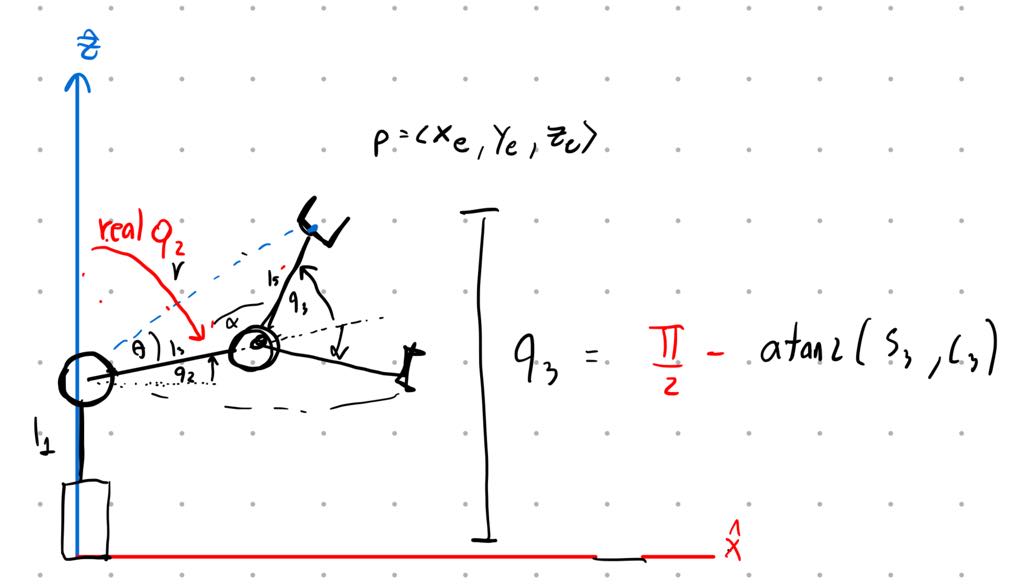 ẑ
p = <xe, ye, ze>
real q2
r
l3
q3
α
θ
l3
q2
l1
q3 = π/2 - atan2(s3, c3)
x̂